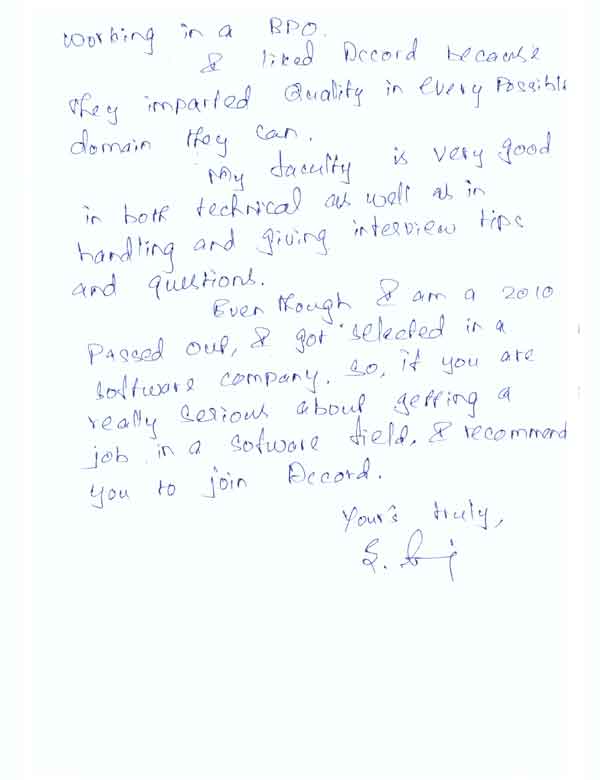 working in a BPO.
I liked Accord because
they imparted Quality in every Possible
domain they can.
My faculty is very good
in both technical as well as in
handling and giving interview tips
and questions.
Even though I am a 2010
Passed out, I got selected in a
software company. So, if you are
really serious about getting a
job in a sotware field, I recommend
you to join Accord.
Your's truly,
S.